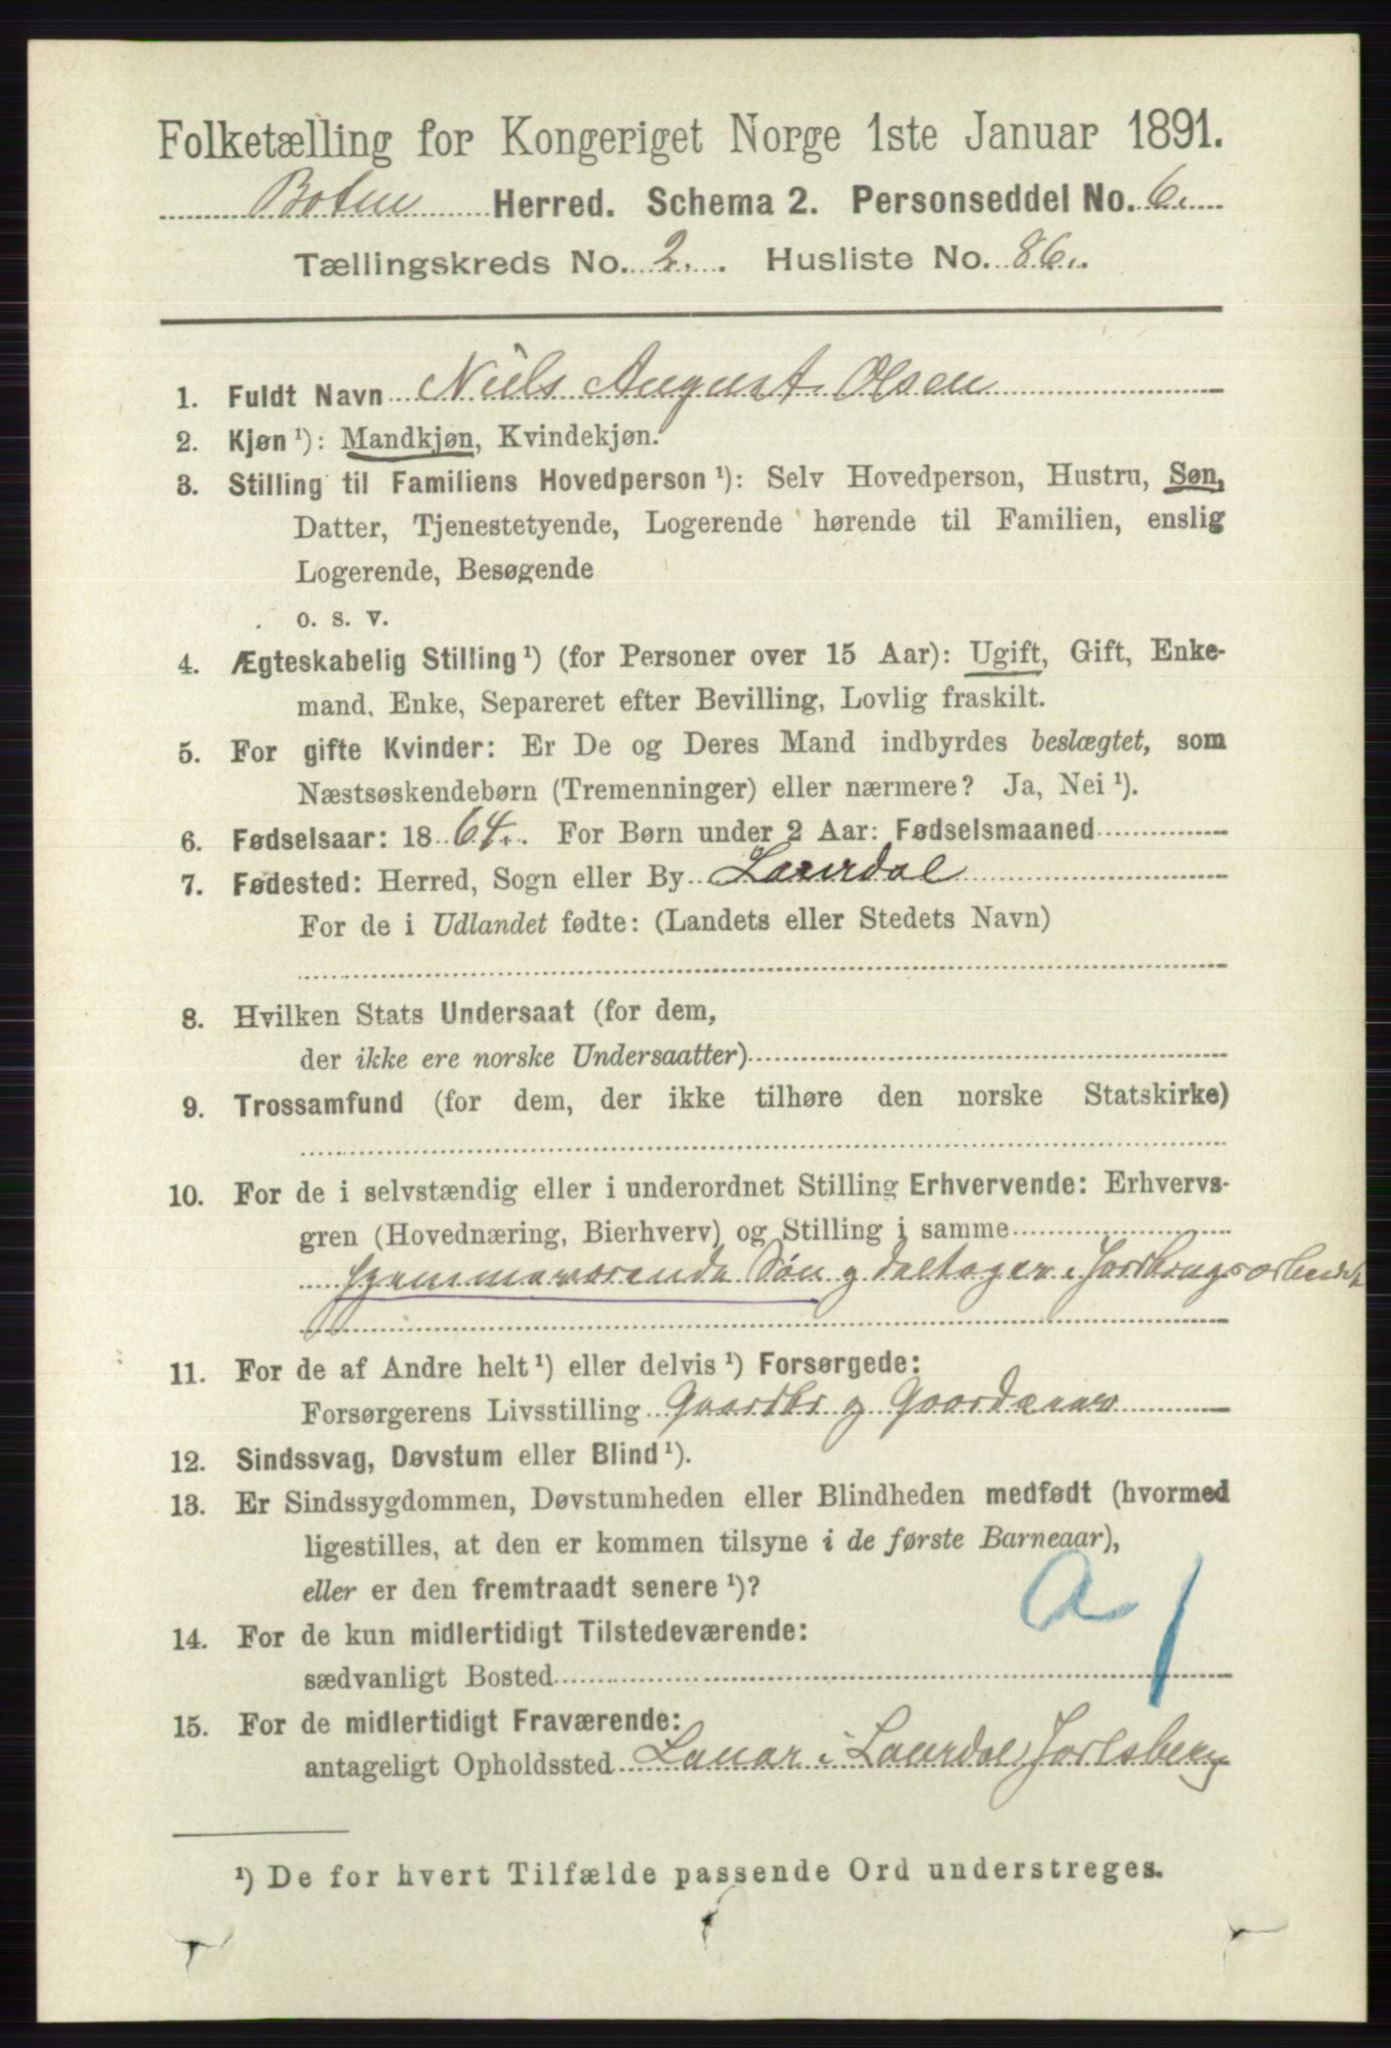 Folketælling for Kongeriget Norge 1ste Januar 1891.
Botne Herred. Schema 2. Personseddel No. 6.
Tællingskreds No. 2. Husliste No. 86.
1. Fuldt Navn Niels August Olsen
2. Kjøn ¹): Mandkjøn, Kvindekjøn.
3. Stilling til Familiens Hovedperson ¹): Selv Hovedperson, Hustru, Søn,
Datter, Tjenestetyende, Logerende hørende til Familien, enslig
Logerende, Besøgende
o. s. v.
4. Ægteskabelig Stilling ¹) (for Personer over 15 Aar): Ugift, Gift, Enke-
mand, Enke, Separeret efter Bevilling, Lovlig fraskilt.
5. For gifte Kvinder: Er De og Deres Mand indbyrdes beslægtet, som
Næstsøskendebørn (Tremenninger) eller nærmere? Ja, Nei ¹).
6. Fødselsaar: 1864. For Børn under 2 Aar: Fødselsmaaned
7. Fødested: Herred, Sogn eller By Laurdal
For de i Udlandet fødte: (Landets eller Stedets Navn)
8. Hvilken Stats Undersaat (for dem,
der ikke ere norske Undersaatter)
9. Trossamfund (for dem, der ikke tilhøre den norske Statskirke)
10. For de i selvstændig eller i underordnet Stilling Erhvervende: Erhvervs-
gren (Hovednæring, Bierhverv) og Stilling i samme
hjemmeværende Søn og deltager i Jordbrugsarbeidet
11. For de af Andre helt ¹) eller delvis ¹) Forsørgede:
Forsørgerens Livsstilling Gaardbr og Gaardeier
12. Sindssvag, Døvstum eller Blind ¹).
13. Er Sindssygdommen, Døvstumheden eller Blindheden medfødt (hvormed
ligestilles, at den er kommen tilsyne i de første Barneaar),
eller er den fremtraadt senere ¹)?
a 1
14. For de kun midlertidigt Tilstedeværende:
sædvanligt Bosted
15. For de midlertidigt Fraværende:
antageligt Opholdssted i Laurdal, Jarlsberg
¹) De for hvert Tilfælde passende Ord understreges.